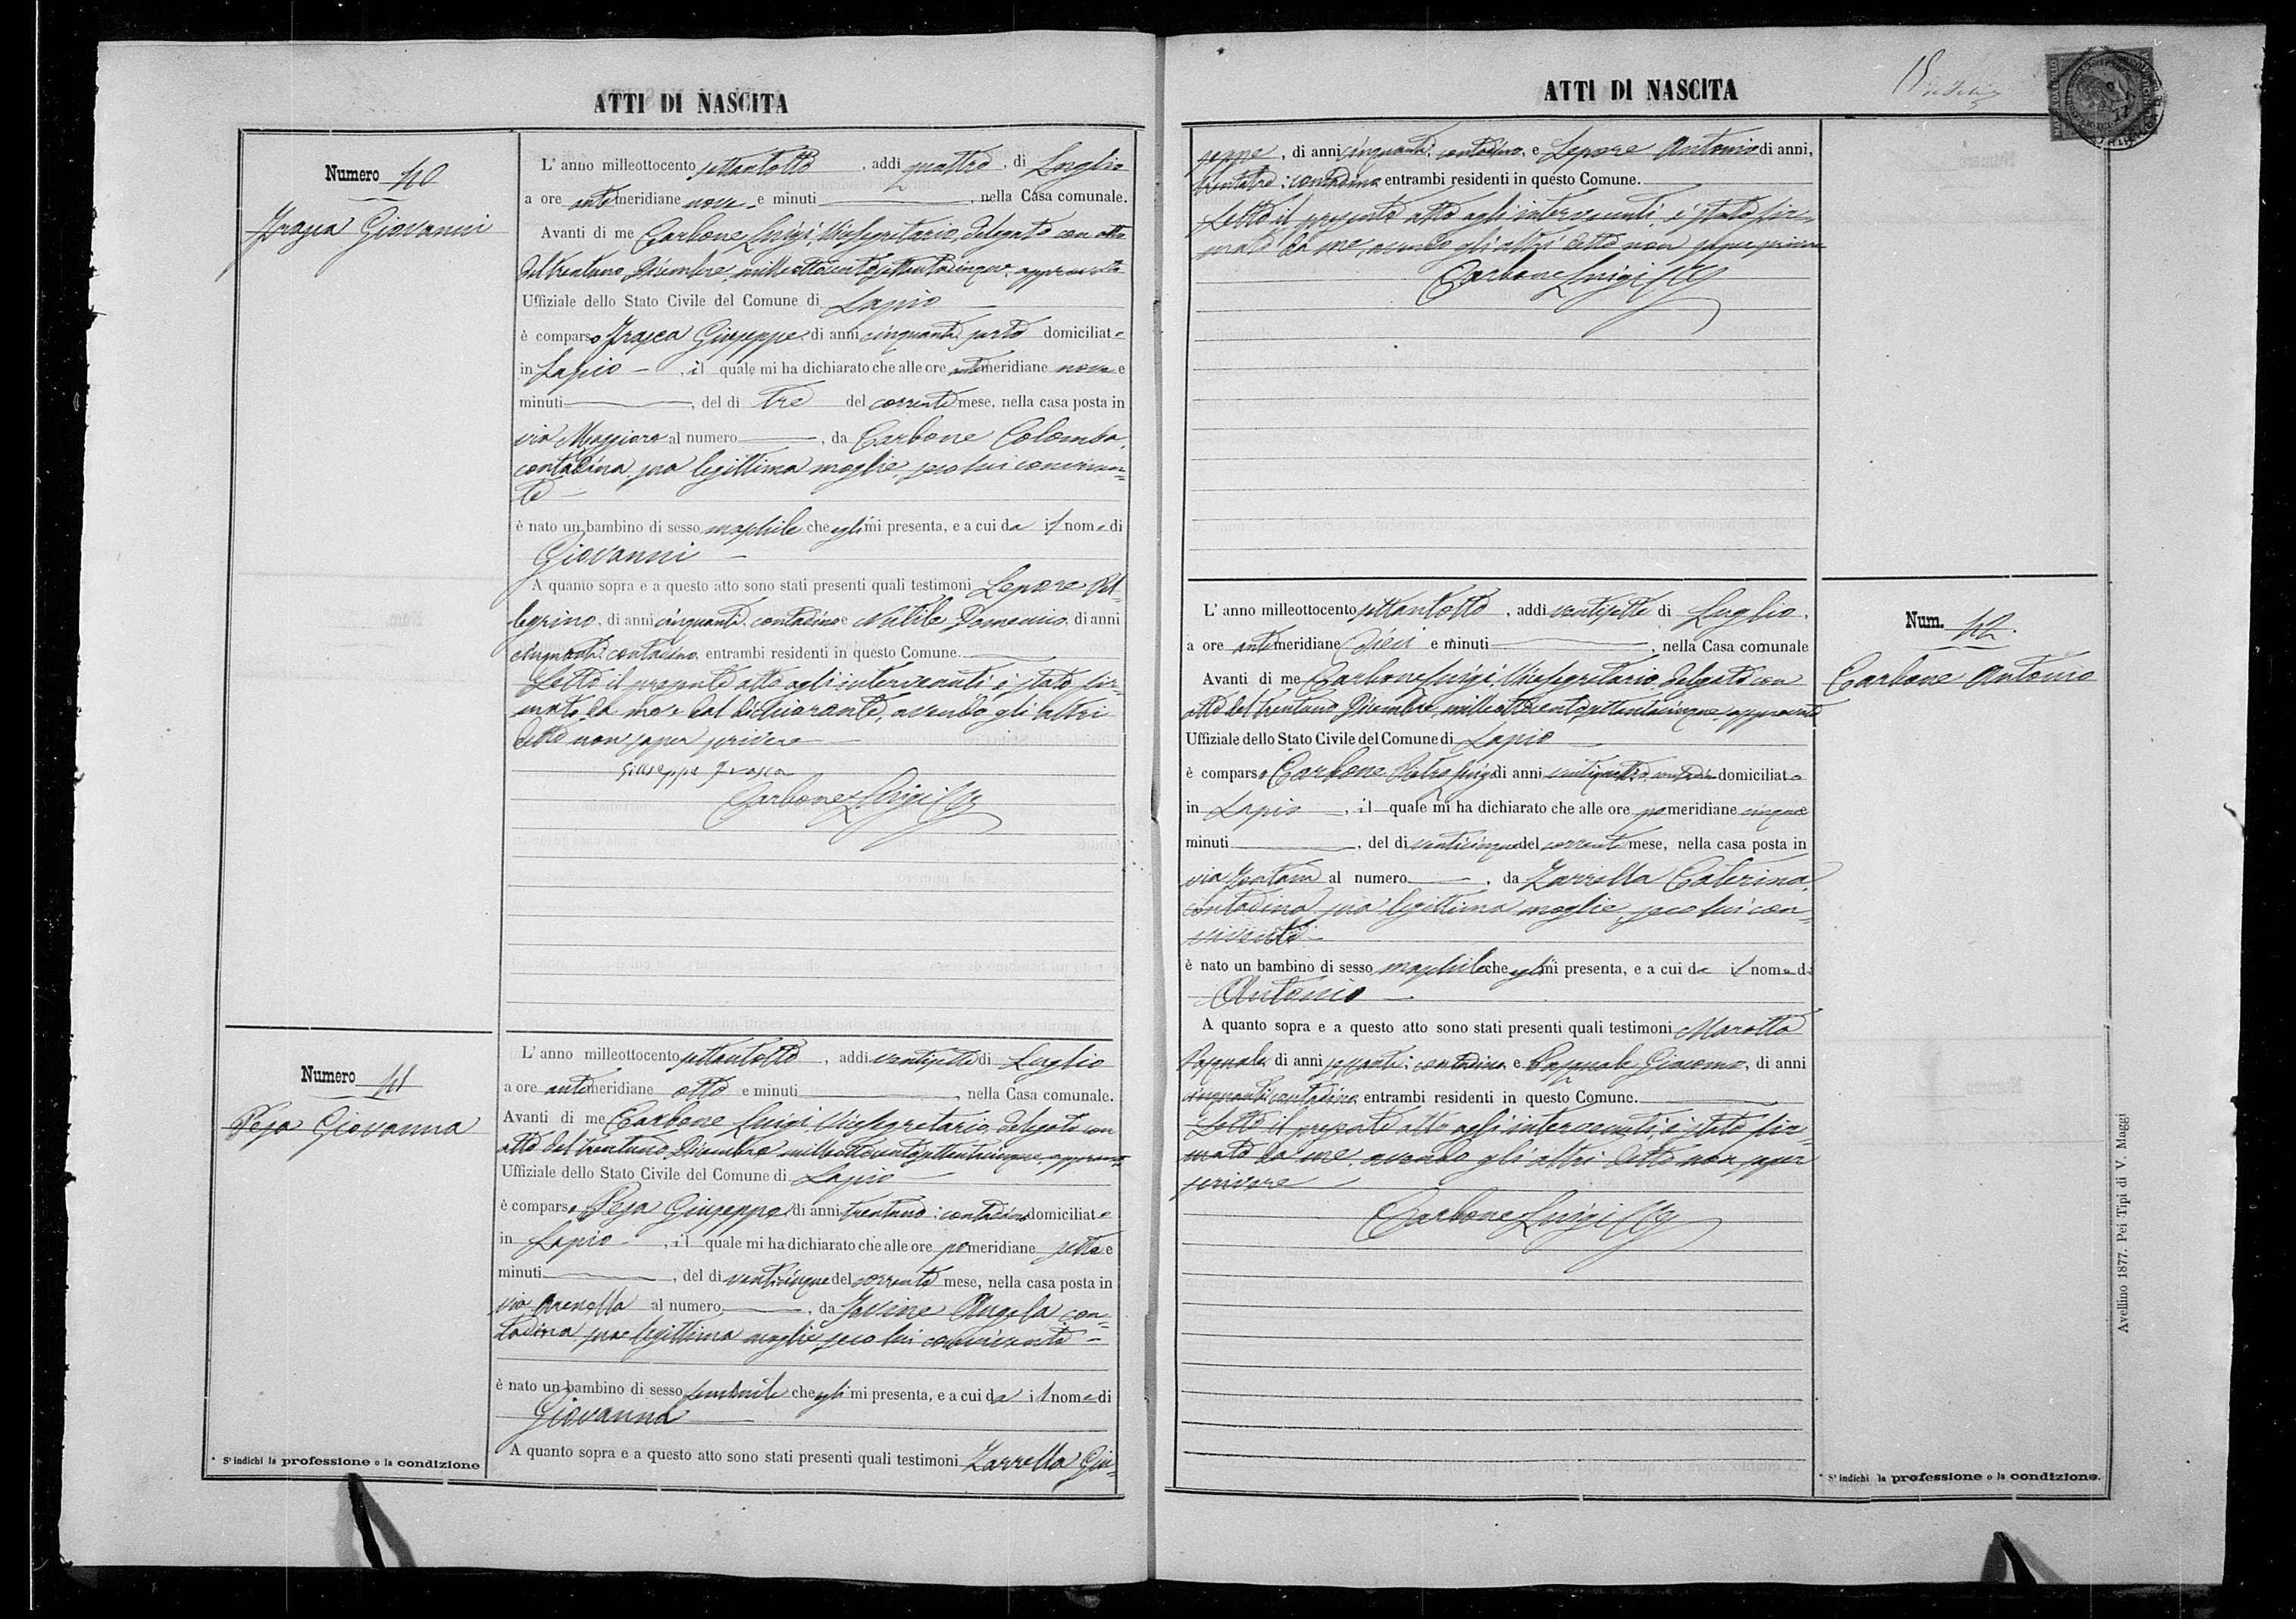 ATTI DI NASCITA
Numero 40
Frasca Giovanni
L' anno milleottocento settantotto, addi quattro, di Luglio
a ore antimeridiane nove e minuti, nella Casa comunale.
Avanti di me Carbone Luigi, Vicesegretario, delegato con atto
del trentuno Dicembre, milleottocentosettantacinque, approvato
Uffiziale dello Stato Civile del Comune di Lapio
è comparso Frasca Giuseppe, di anni cinquanta, sarto domiciliato
in Lapio, il quale mi ha dichiarato che alle ore antimeridiane nove e
minuti, del di tre del corrente mese, nella casa posta in
via Maggiore al numero, da Carbone Colomba,
contadina, sua legittima moglie, seco lui conviven=
te
è nato un bambino di sesso maschile che egli mi presenta, e a cui da il nome di
Giovanni
A quanto sopra e a questo atto sono stati presenti quali testimoni Lepore Pel=
legrino, di anni cinquanta, contadino e Domenico, di anni
cinquanta, contadino, entrambi residenti in questo Comune.
Letto il presente atto agli intervenuti, è stato fir=
mato da me e dal dichiarante, avendo gli altri
detto non saper scrivere
Giuseppe Frasca
Carbone Luigi
Numero 41
Pesa Giovanna
L' anno milleottocento settantotto, addi ventisette di Luglio
a ore antimeridiane otto e minuti, nella Casa comunale.
Avanti di me Carbone Luigi, Vicesegretario, delegato con
atto del trentuno Dicembre milleottocentosettantacinque, approvato
Uffiziale dello Stato Civile del Comune di Lapio
è comparso Pesa Giuseppe, di anni trentuno, contadino domiciliato
in Lapio, il quale mi ha dichiarato che alle ore pomeridiane sette e
minuti, del di venticinque del corrente mese, nella casa posta in
via Arenella al numero, da Iovine Angela, con=
tadina, sua legittima moglie, seco lui convivente
è nato un bambino di sesso femminile che egli mi presenta, e a cui da il nome di
Giovanna
A quanto sopra e a questo atto sono stati presenti quali testimoni Zarrella Giu=
* Si indichi la professione o la condizione
ATTI DI NASCITA
seppe, di anni cinquanta, contadino, e Lepore Antonio di anni,
trentatre, contadino, entrambi residenti in questo Comune.
Letto il presente atto agli intervenuti, è stato fir=
mato da me, avendo gli altri detto non saper scrivere
Carbone Luigi
Num. 42.
Carbone Antonio
L' anno milleottocento settantotto, addi ventisette di Luglio,
a ore antimeridiane dieci e minuti, nella Casa comunale
Avanti di me Carbone Luigi, Vicesegretario, delegato con
atto del trentuno Dicembre, milleottocentosettantacinque, approvato
Uffiziale dello Stato Civile del Comune di Lapio
è comparso Carbone Pietro Luigi di anni ventiquattro, contadino domiciliato
in Lapio, il quale mi ha dichiarato che alle ore pomeridiane cinque
minuti, del di venticinque del corrente mese, nella casa posta in
via Fontana al numero, da Zarrella Caterina,
contadina, sua legittima moglie, seco lui con=
vivente
è nato un bambino di sesso maschile che egli mi presenta, e a cui da il nome di
Antonio
A quanto sopra e a questo atto sono stati presenti quali testimoni Marotta
Pasquale, di anni sessanta, contadino e Pasquale Giacomo, di anni
cinquanta, contadino, entrambi residenti in questo Comune.
Letto il presente atto agli intervenuti, è stato fir=
mato da me, avendo gli altri detto non saper
scrivere
Carbone Luigi
* Si indichi la professione o la condizione.
Avellino 1877. Pei Tipi di V. Maggi